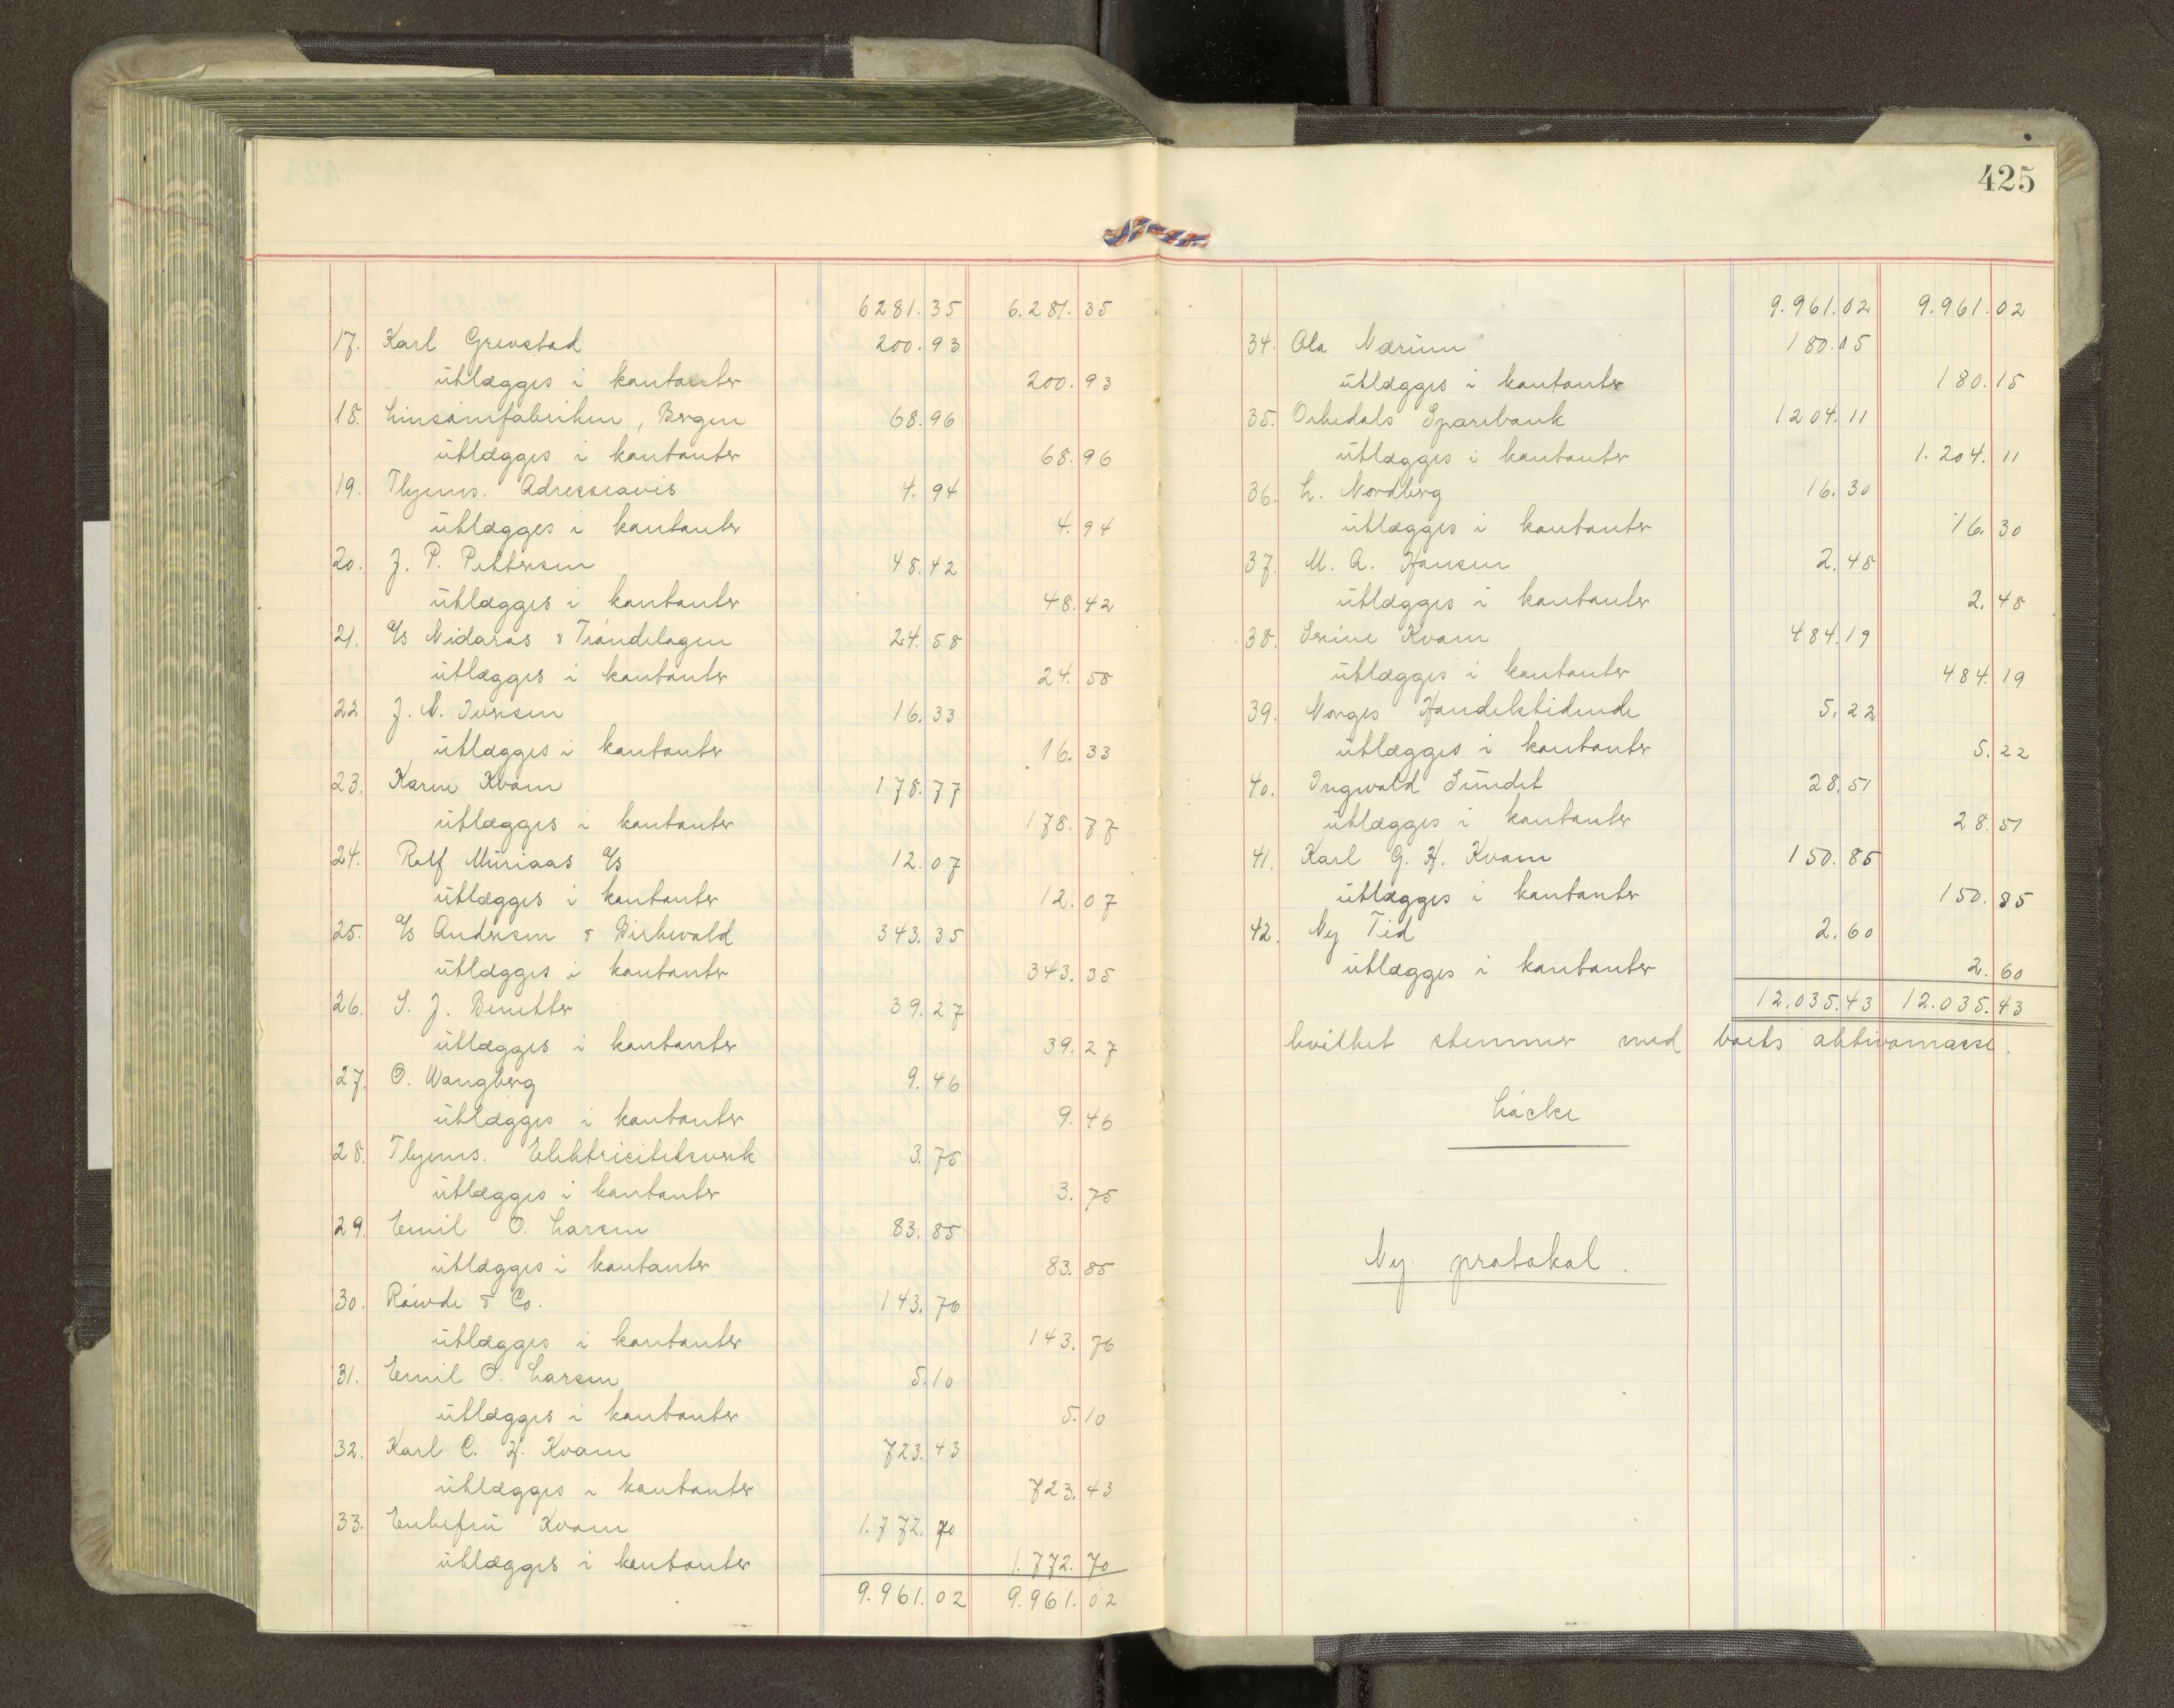 6281.35 6.281.35
17. Karl Grevstad 200.93
utlægges i kontanter 200.93
18. Linsømfabriken, Bergen 68.96
utlægges i kontanter 68.96
19. Thjems. Adresseavis 4.94
utlægges i kontanter 4.94
20. J. P. Pettersen 48.42
utlægges i kontanter 48.42
21. A/s Nidaros & Trøndelagen 24.58
utlægges i kontanter 24.58
22. J. N. Iversen 16.33
utlægges i kontanter 16.33
23. Karen Kvam 178.77
utlægges i kontanter 178.77
24. Rolf Muriaas A/s 12.07
utlægges i kontanter 12.07
25. A/s Andresen & Birkevold 343.35
utlægges i kontanter 343.35
26. S. J. Benetter 39.27
utlægges i kontanter 39.27
27. O. Wangberg 9.46
utlægges i kontanter 9.46
28. Thjems. Elektricitetsverk 3.75
utlægges i kontanter 3.75
29. Emil O. Larsen 83.85
utlægges i kontanter 83.85
30. Røwde & Co. 143.76
utlægges i kontanter 143.76
31. Emil O. Larsen 5.10
utlægges i kontanter 5.10
32. Karl C. H. Kvam 723.43
utlægges i kontanter 723.43
33. Enkefru Kvam 1.772.70
utlægges i kontanter 1.772.70
9.961.02 9.961.02
425
9.961.02 9.961.02
34. Ola Nærum 180.15
utlægges i kontanter 180.15
35. Orkedals Sparebank 1204.11
utlægges i kontanter 1.204.11
36. L. Nordberg 16.30
utlægges i kontanter 16.30
37. M. A. Hansen 2.48
utlægges i kontanter 2.48
38. Serine Kvam 484.19
utlægges i kontanter 484.19
39. Norges Handelstidende 5.22
utlægges i kontanter 5.22
40. Ingvald Sundet 28.51
utlægges i kontanter 28.51
41. Karl G. H. Kvam 150.85
utlægges i kontanter 150.85
42. Ny Tid 2.60
utlægges i kontanter 2.60
12.035.43 12.035.43
hvilket stemmer med boets aktivamasse.
Løcke
Ny protokol.